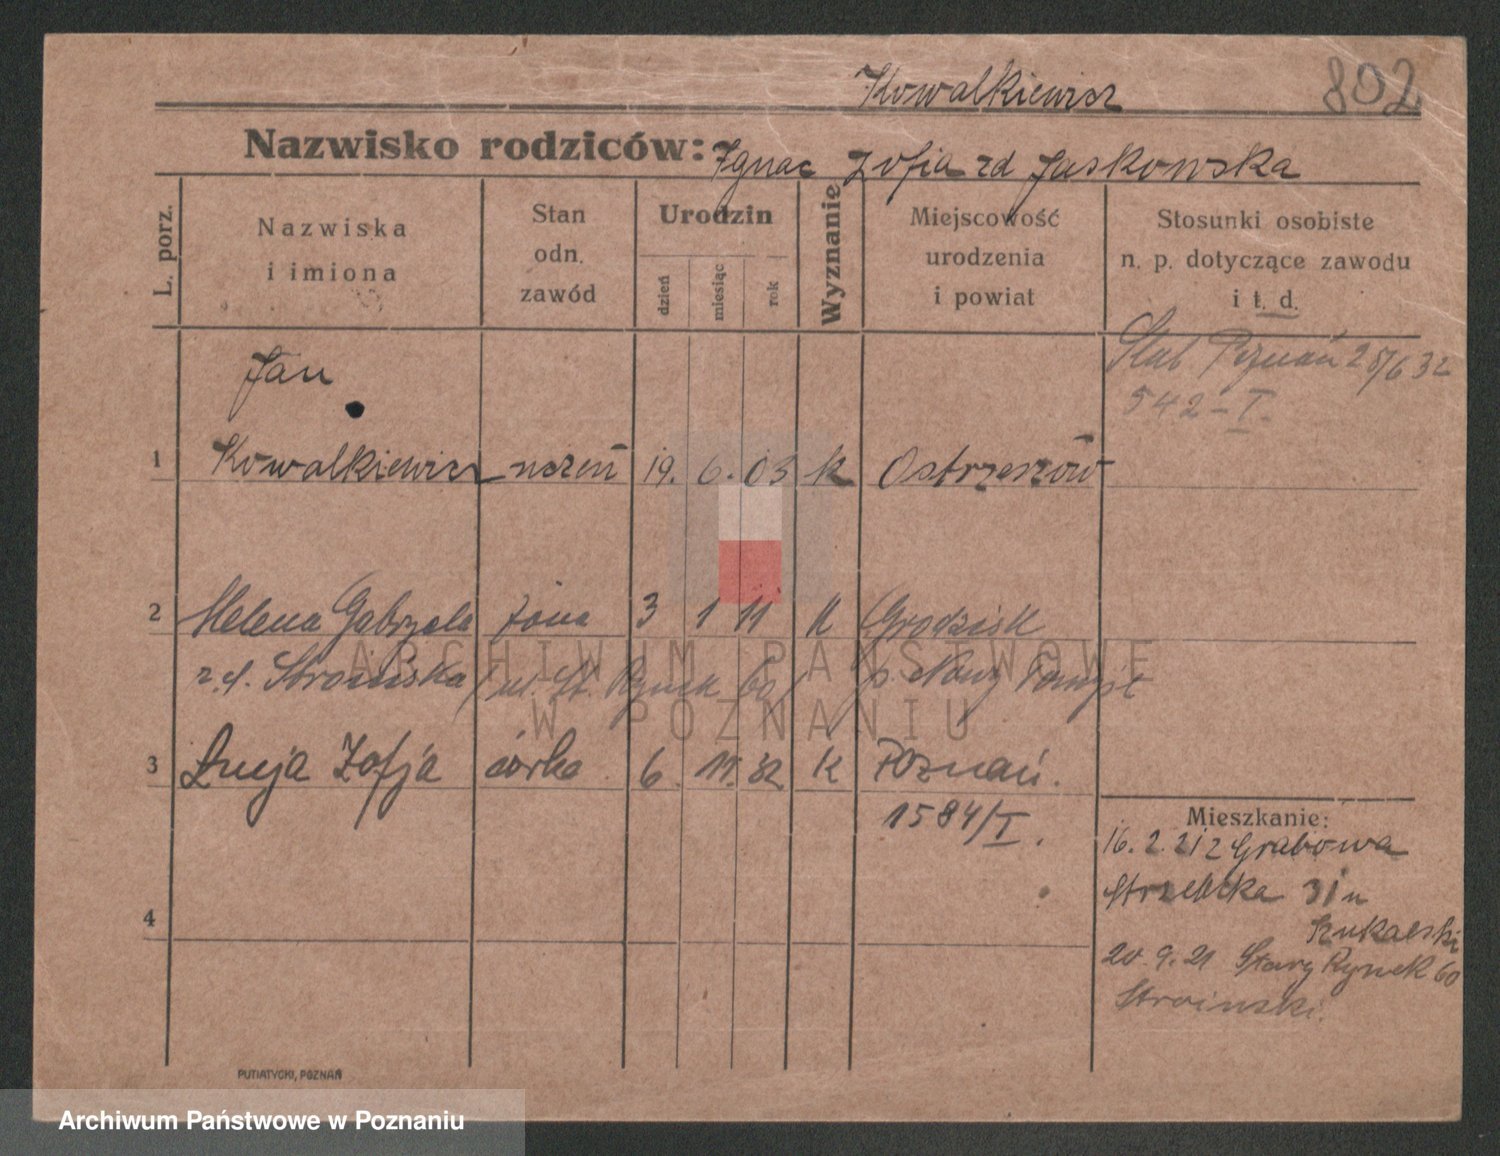 Kowalkiewicz 802
Nazwisko rodziców: Ignac Zofia zd Jaskowska
L. porz.
Nazwiska i imiona
Stan odn. zawód
Urodzin
dzień miesiąc rok
Wyznanie
Miejscowość urodzenia i powiat
Stosunki osobiste n. p. dotyczące zawodu i t. d.
Jan
Ślub Poznań 25/6 32
542-I.
1 Kowalkiewicz uczeń 19. 6. 03 k Ostrzeszów
2 Helena Gabryela żona 3 1 11 k Grodzisk
z d. Stroińska ul. St. Rynek 60 p. Nowy Tomyśl
ARCHIWUM PAŃSTWOWE
W POZNANIU
3 Łucja Zofja córka 6. 11. 32 k Poznań.
1584/I.
Mieszkanie:
16. 2. 21 z Grabowa
Strzelecka 31 u
20. 9. 21 Stary Rynek 60
Stroinski.
4
PUTIATYCKI, POZNAŃ
Archiwum Państwowe w Poznaniu